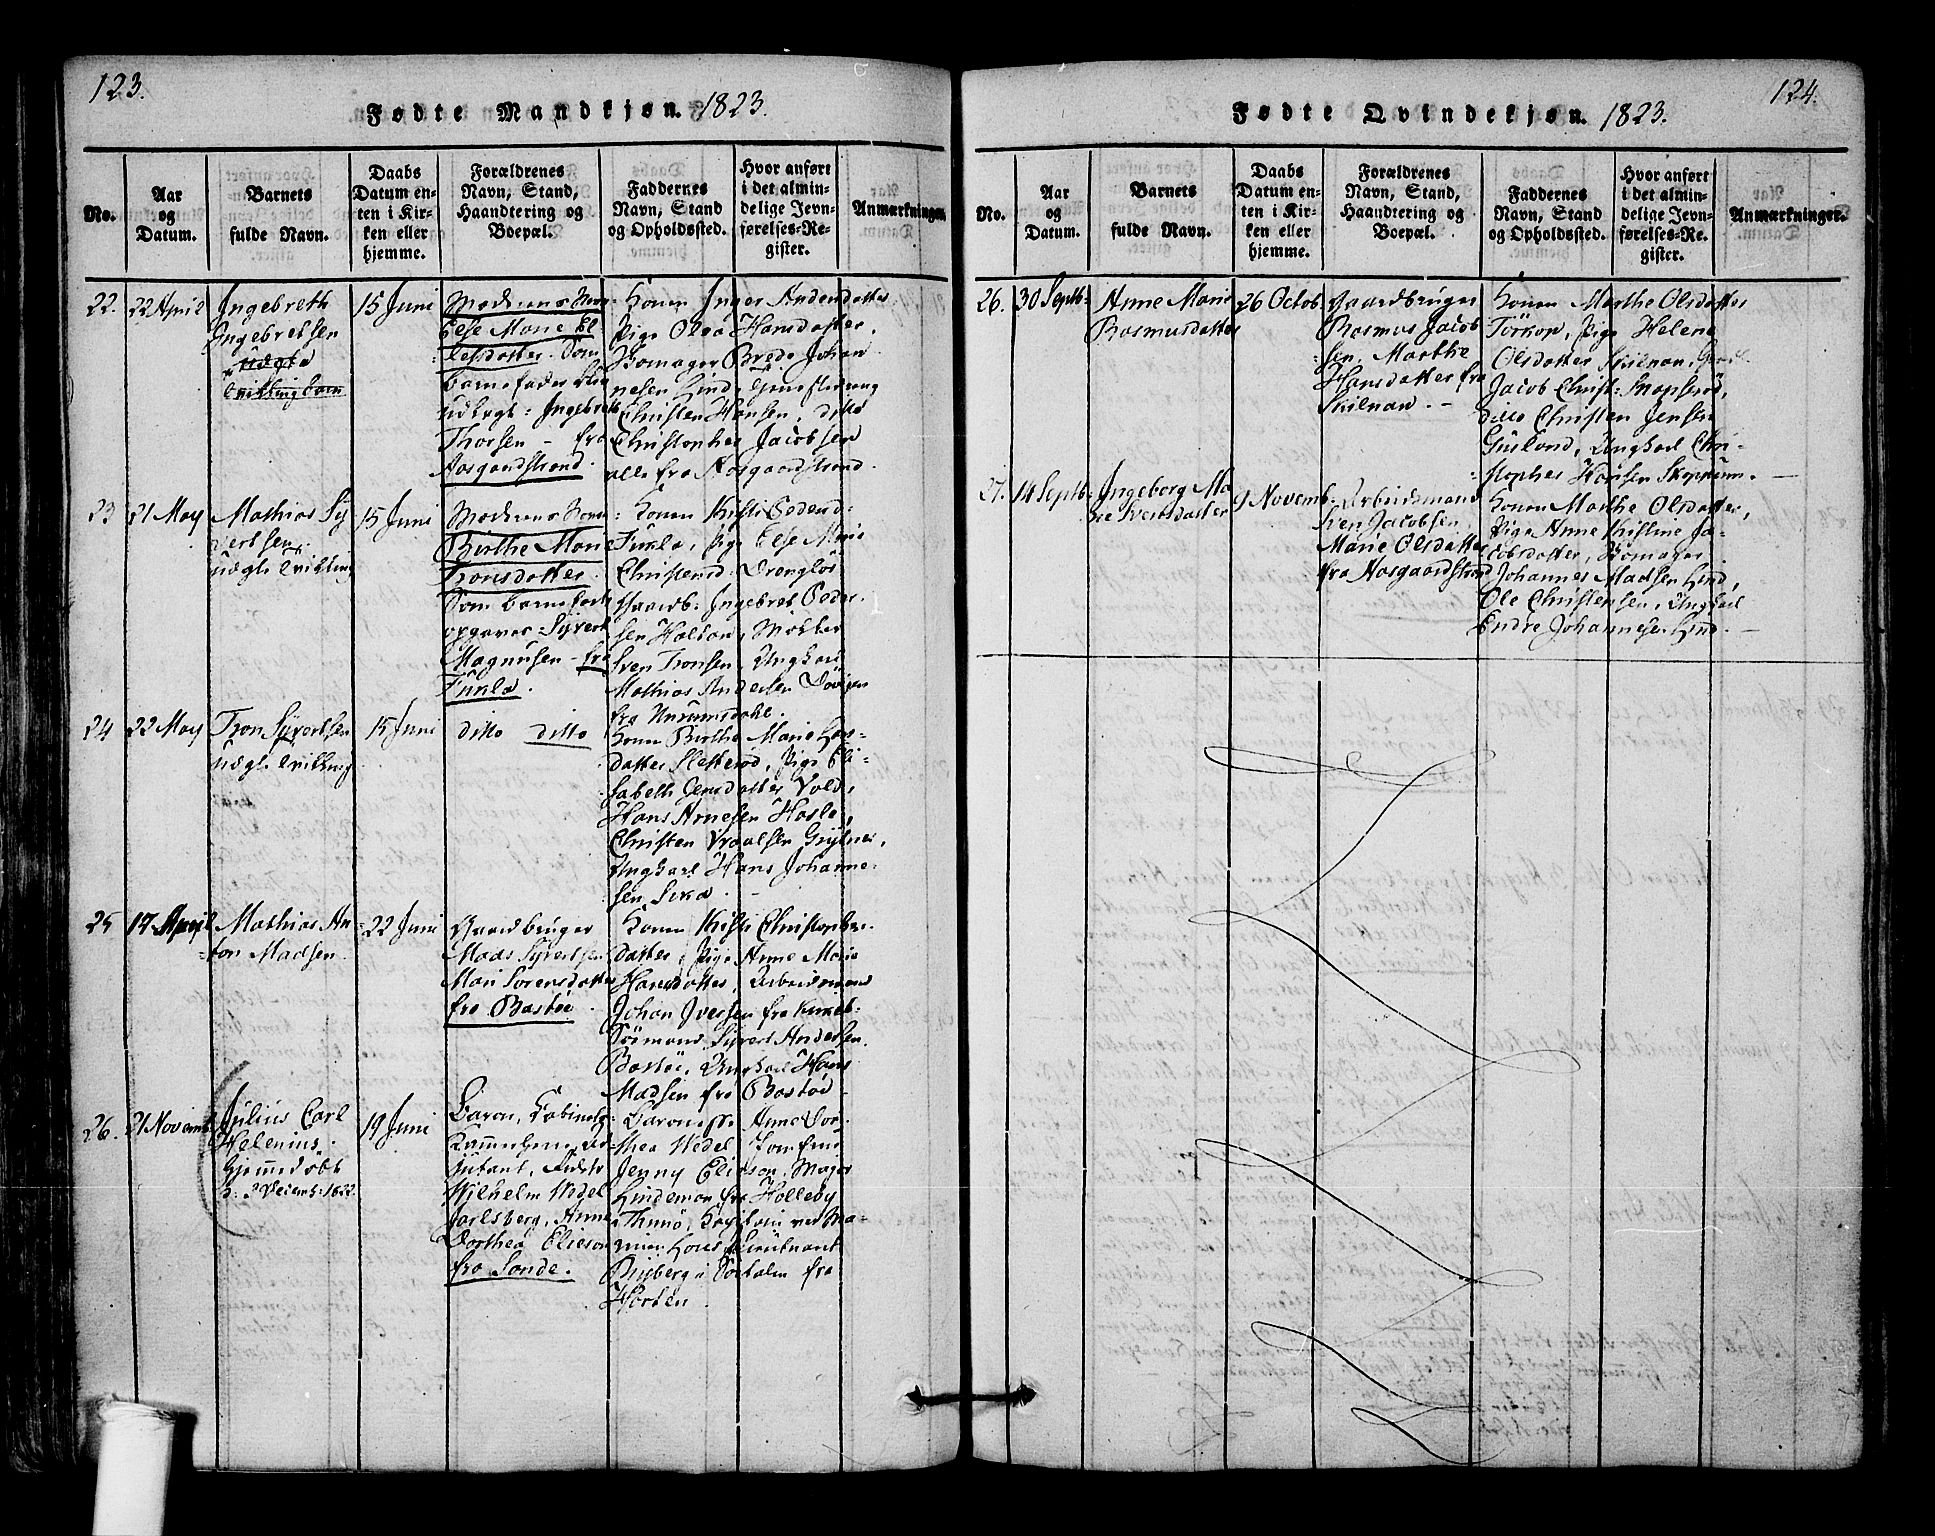 123.
Fødte Mandkjøn. 1823.
No.
Aar
og
Datum.
Barnets
fulde Navn.
Daabs
Datum en-
ten i Kir-
ken eller
hjemme.
Forældrenes
Navn, Stand,
Haandtering og
Boepæl.
Faddernes
Navn, Stand
og Opholdssted.
Hvor anført
i det almin-
delige Jevn-
førelses-Re-
gister.
Anmærkninger.
22.
22 April
Ingebreth
Ingebretsen
uægte
Tvilling barn
15 Juni
Moderens Navn
Else Marie El
lefsdatter. Som
barnefader blev
udlagt: Ingebreth
Thorsen - fra
Aasgaardstrand.
Konen Inger Andersdatter
Pige Olea Hansdatter,
Skomager Brede Johan-
nesen Lind,
Christen Hansen, ditto
Christopher Jacobsen
alle fra Aasgaardstrand.
23
21 May
Mathias Sy
vertsen.
uægte Tvilling
15 Juni
Moderens Navn
Birthe Marie
Tronsdatter.
Som barnefader
opgaves: Syvert
Magnusen - fra
Konen Kisti Pedersd:
Pige Else Marie
Christensd:
Gaardb: Ingebret Peder-
sen Holtan,
Sven Tronsen, Ungkarl
Mathias Andersen
24
22 May
Tron Syvertsen
uægte Tvilling
15 Juni
ditto ditto
Konen Birthe Marie Hans-
datter Sletterød, Pige Eli-
sabeth Jensdatter Vold,
Hans Arnesen Hasle,
Christen
Ungkarl Hans Johanne-
sen
25
17 April
Mathias An
=ton Madsen.
22 Juni
Gaardbruger
Mads Syvertsen
Mari Sørensdatter
fra Bastøe.
Konen Kisti Christopher-
datter, Pige Anne Marie
Hansdatter, Arbeidsmand
Johan Iversen fra
Sömand Syvert Andersen
Bastöe, Ungkarl Hans
Madsen fra Bastöe
26.
21 Novemb
Julius Carl
Helenius.
Hjemmedöbt
d: 2 Decemb: 1822.
19 Juni
Baron,
Kammerherre,
Wilhelm Wedel
Jarlsberg, Anne
Dorthea Elieson
fra Sande.
Baronesse Anna Dor-
thea Wedel, Jomfrue
Jenny Elieson, Major
Lindeman fra Holleby
i Thunø, Kapitain ved Ma-
Lieutnant
fra
Horten.
124.
Fødte Qvindekjøn. 1823.
No.
Aar
og
Datum.
Barnets
fulde Navn.
Daabs
Datum en-
ten i Kir-
ken eller
hjemme.
Forældrenes
Navn, Stand,
Haandtering og
Boepæl.
Faddernes
Navn, Stand
og Opholdssted.
Hvor anført
i det almin-
delige Jevn-
førelses-Re-
gister.
Anmærkninger.
26.
30 Septb:
Anne Marie
Rasmusdatter
26 Octob
Gaardbruger
Rasmus Jacob
=sen, Marthe
Hansdatter fra
Skilnan. -
Konen Marthe Olsdatter
Törkop, Pige Helene
Olsdatter Skilnan, Grdb.
Jacob Christ: Snapserød,
ditto Christen Jensen
Gusland, Ungkarl Chri-
stopher Hansen Skoppum. -
27.
14 Septb.
Ingeborg Ma
rie Svensdatter
9 Novemb.
Arbeidsmand
Sven Jacobsen,
Marie Olsdatter
fra Aasgaardstrand
Konen Marthe Olsdatter,
Pige Anne Kistine Ja-
cobsdatter, Skomager
Johannes Madsen Lind,
Ole Christensen, Ungkarl
Endre Johannesen Lind. -